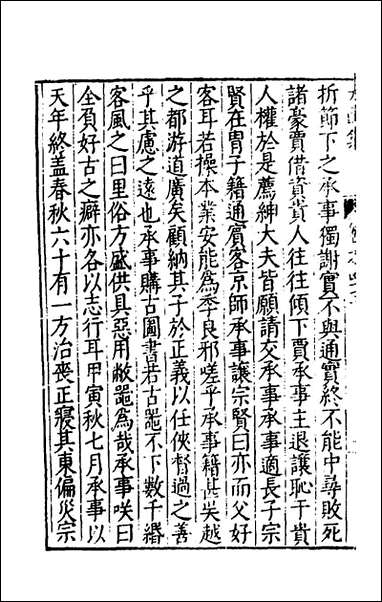 折節下之承事獨謝實不與通實終不能中尋敗死
諸豪賈借資貴人往往傾下賈承事主退讓恥干貴
人權於是薦紳大夫皆願請交承事承事適長子宗
賢在胄子籍通賓客京師承事讓宗賢曰亦而父好
客耳若操本業安能為季良邪嗟乎承事籍甚吳越
之都游道廣矣顧納其子於正義以任俠督過之善
乎其慮之遠也承事購古圖書若古噐不下數千緡
客風之曰里俗方盛供具惡用敝噐為哉承事咲曰
全負好古之癖亦各以志行耳甲寅秋七月承事以
天年終蓋春秋六十有一方治喪正寢其東偏災宗